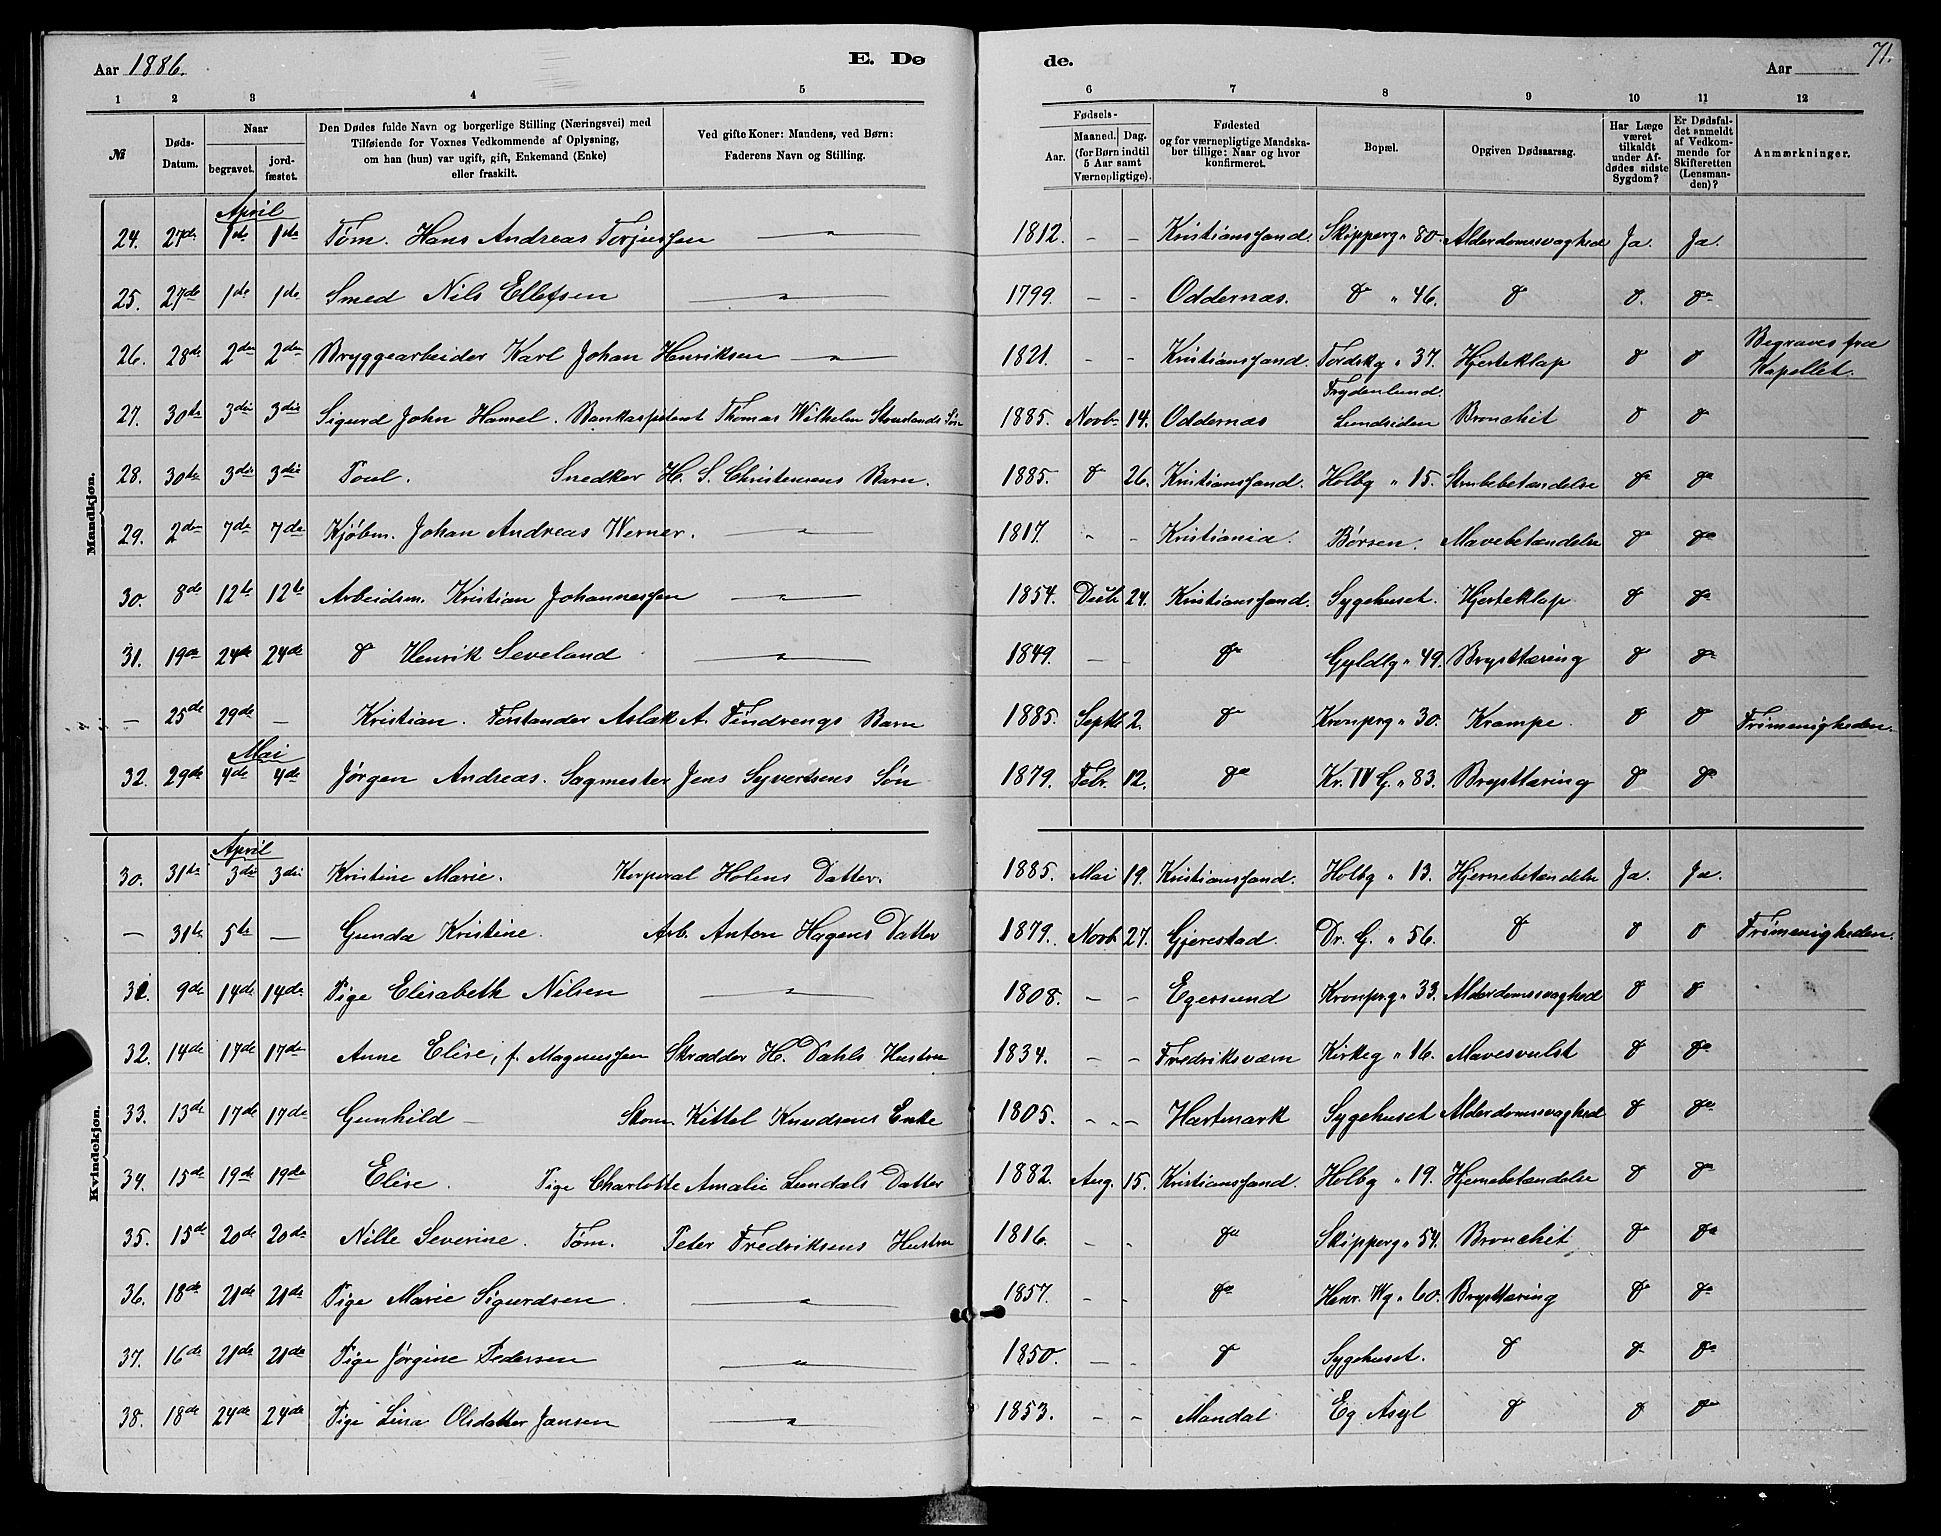 Aar 1886. E. Dø de. Aar 71.
1 2 3 4 5 6 7 8 9 10 11 12
№ Døds-Datum. Naar begravet. jordfæstet. Den Dødes fulde Navn og borgerlige Stilling (Næringsvei) med Tilføiende for Voxnes Vedkommende af Oplysning, om han (hun) var ugift, gift, Enkemand (Enke) eller fraskilt. Ved gifte Koner: Mandens, ved Børn: Faderens Navn og Stilling. Fødsels- Aar. Maaned. Dag. (for Børn indtil 5 Aar samt Værnepligtige). Fødested og for værnepligtige Mandskaber tillige: Naar og hvor konfirmeret. Bopæl. Opgiven Dødsaarsag. Har Læge været tilkaldt under Afdødes sidste Sygdom? Er Dødsfaldet anmeldt af Vedkommende for Skifteretten (Lensmanden)? Anmærkninger.
Mandkjøn.
April
24. 27de 1ste 1ste Tøm. Hans Andreas Torjussen — " — 1812. - - Kristianssand. Skipperg " 80. Alderdomssvaghed Ja. Ja.
25. 27de 1ste 1ste Smed Nils Ellefsen — " — 1799. - - Oddernæs. do " 46. do do do
26. 28de 2den 2den Bryggearbeider Karl Johan Henriksen — " — 1821. - - Kristianssand. Tordskg " 37. Hjerteklap do do Begraves fra Kapellet.
27. 30te 3die 3die Sigurd John Hamel. Bankassistent Thomas Wilhelm Søn 1885. Novb. 14. Oddernæs Frydenlund. Lundsiden Bronchit do do
28. 30te 3die 3die Poul. Snedker H. S. Christensens Barn. 1885. do 26. Kristianssand. Holbg " 15. Strubebetændelse do do
29. 2den 7de 7de Kjøbm. Johan Andreas Werner. — " — 1817. - - Kristiania. Børsen. Mavebetændelse do do
30. 8de 12te 12te Arbeidsm. Kristian Johannessen — " — 1854. Dcbr 24. Kristianssand. Sygehuset. Hjerteklap do do
31. 19de 24de 24de do Henrik Seveland — " — 1849. - - do Gyldlg " 49. Brysttæring do do
- 25de 29de - Kristian. Forstander Aslak A. Findrengs Barn 1885. Septbr. 2. do Kronprg " 30. Krampe. do do Frimenigheden.
Mai
32. 29de 4de 4de Jørgen Andreas. Sagmester Jens Syvertsens Søn 1879. Febr. 12. do Kr. IV G. " 83. Brysttæring do do
Kvindekjøn.
April
30. 31te 3die 3die Kristine Marie. Korporal Holens Datter. 1885. Mai 19. Kristianssand. Holbg " 13. Hjernebetændelse Ja. Ja.
- 31te 5te - Gunda Kristine. Arb. Anton Hagens Datter 1879. Novb. 27. Gjerestad. Dr. G. " 56. do do do Frimenigheden.
31. 9de 14de 14de Pige Elisabeth Nilsen — " — 1808. - - Egersund Kronprg " 33. Alderdomssvaghed do do
32. 14de 17de 17de Anne Elise, f. Magnussen Skrædder H. Dahls Hustru 1834. - - Fredriksværn Kirkeg " 16. Mavesvulst do do
33. 13de 17de 17de Gunhild - Skom. Kittel Knudsens Enke 1805. - - Hartmark Sygehuset Alderdomssvaghed do do
34. 15de 19de 19de Elise. Pige Charlotte Amalie Lundals Datter 1882. Aug. 15. Kristianssand. Holbg " 19. Hjernebetændelse do do
35. 15de 20de 20de Nille Severine. Tøm. Peter Fredriksens Hustru 1816. - - do Skipperg " 54. Bronchit do do
36. 18de 21de 21de Pige Marie Sigurdsen. — " — 1857. - - do Henr. Wg " 60. Brysttæring do do
37. 16de 21de 21de Pige Jørgine Pedersen — " — 1850. - - do Sygehuset. do do do
38. 18de 24de 24de Pige Lina Olsdatter Jansen — " — 1853. - - Mandal Eg Asyl do do do